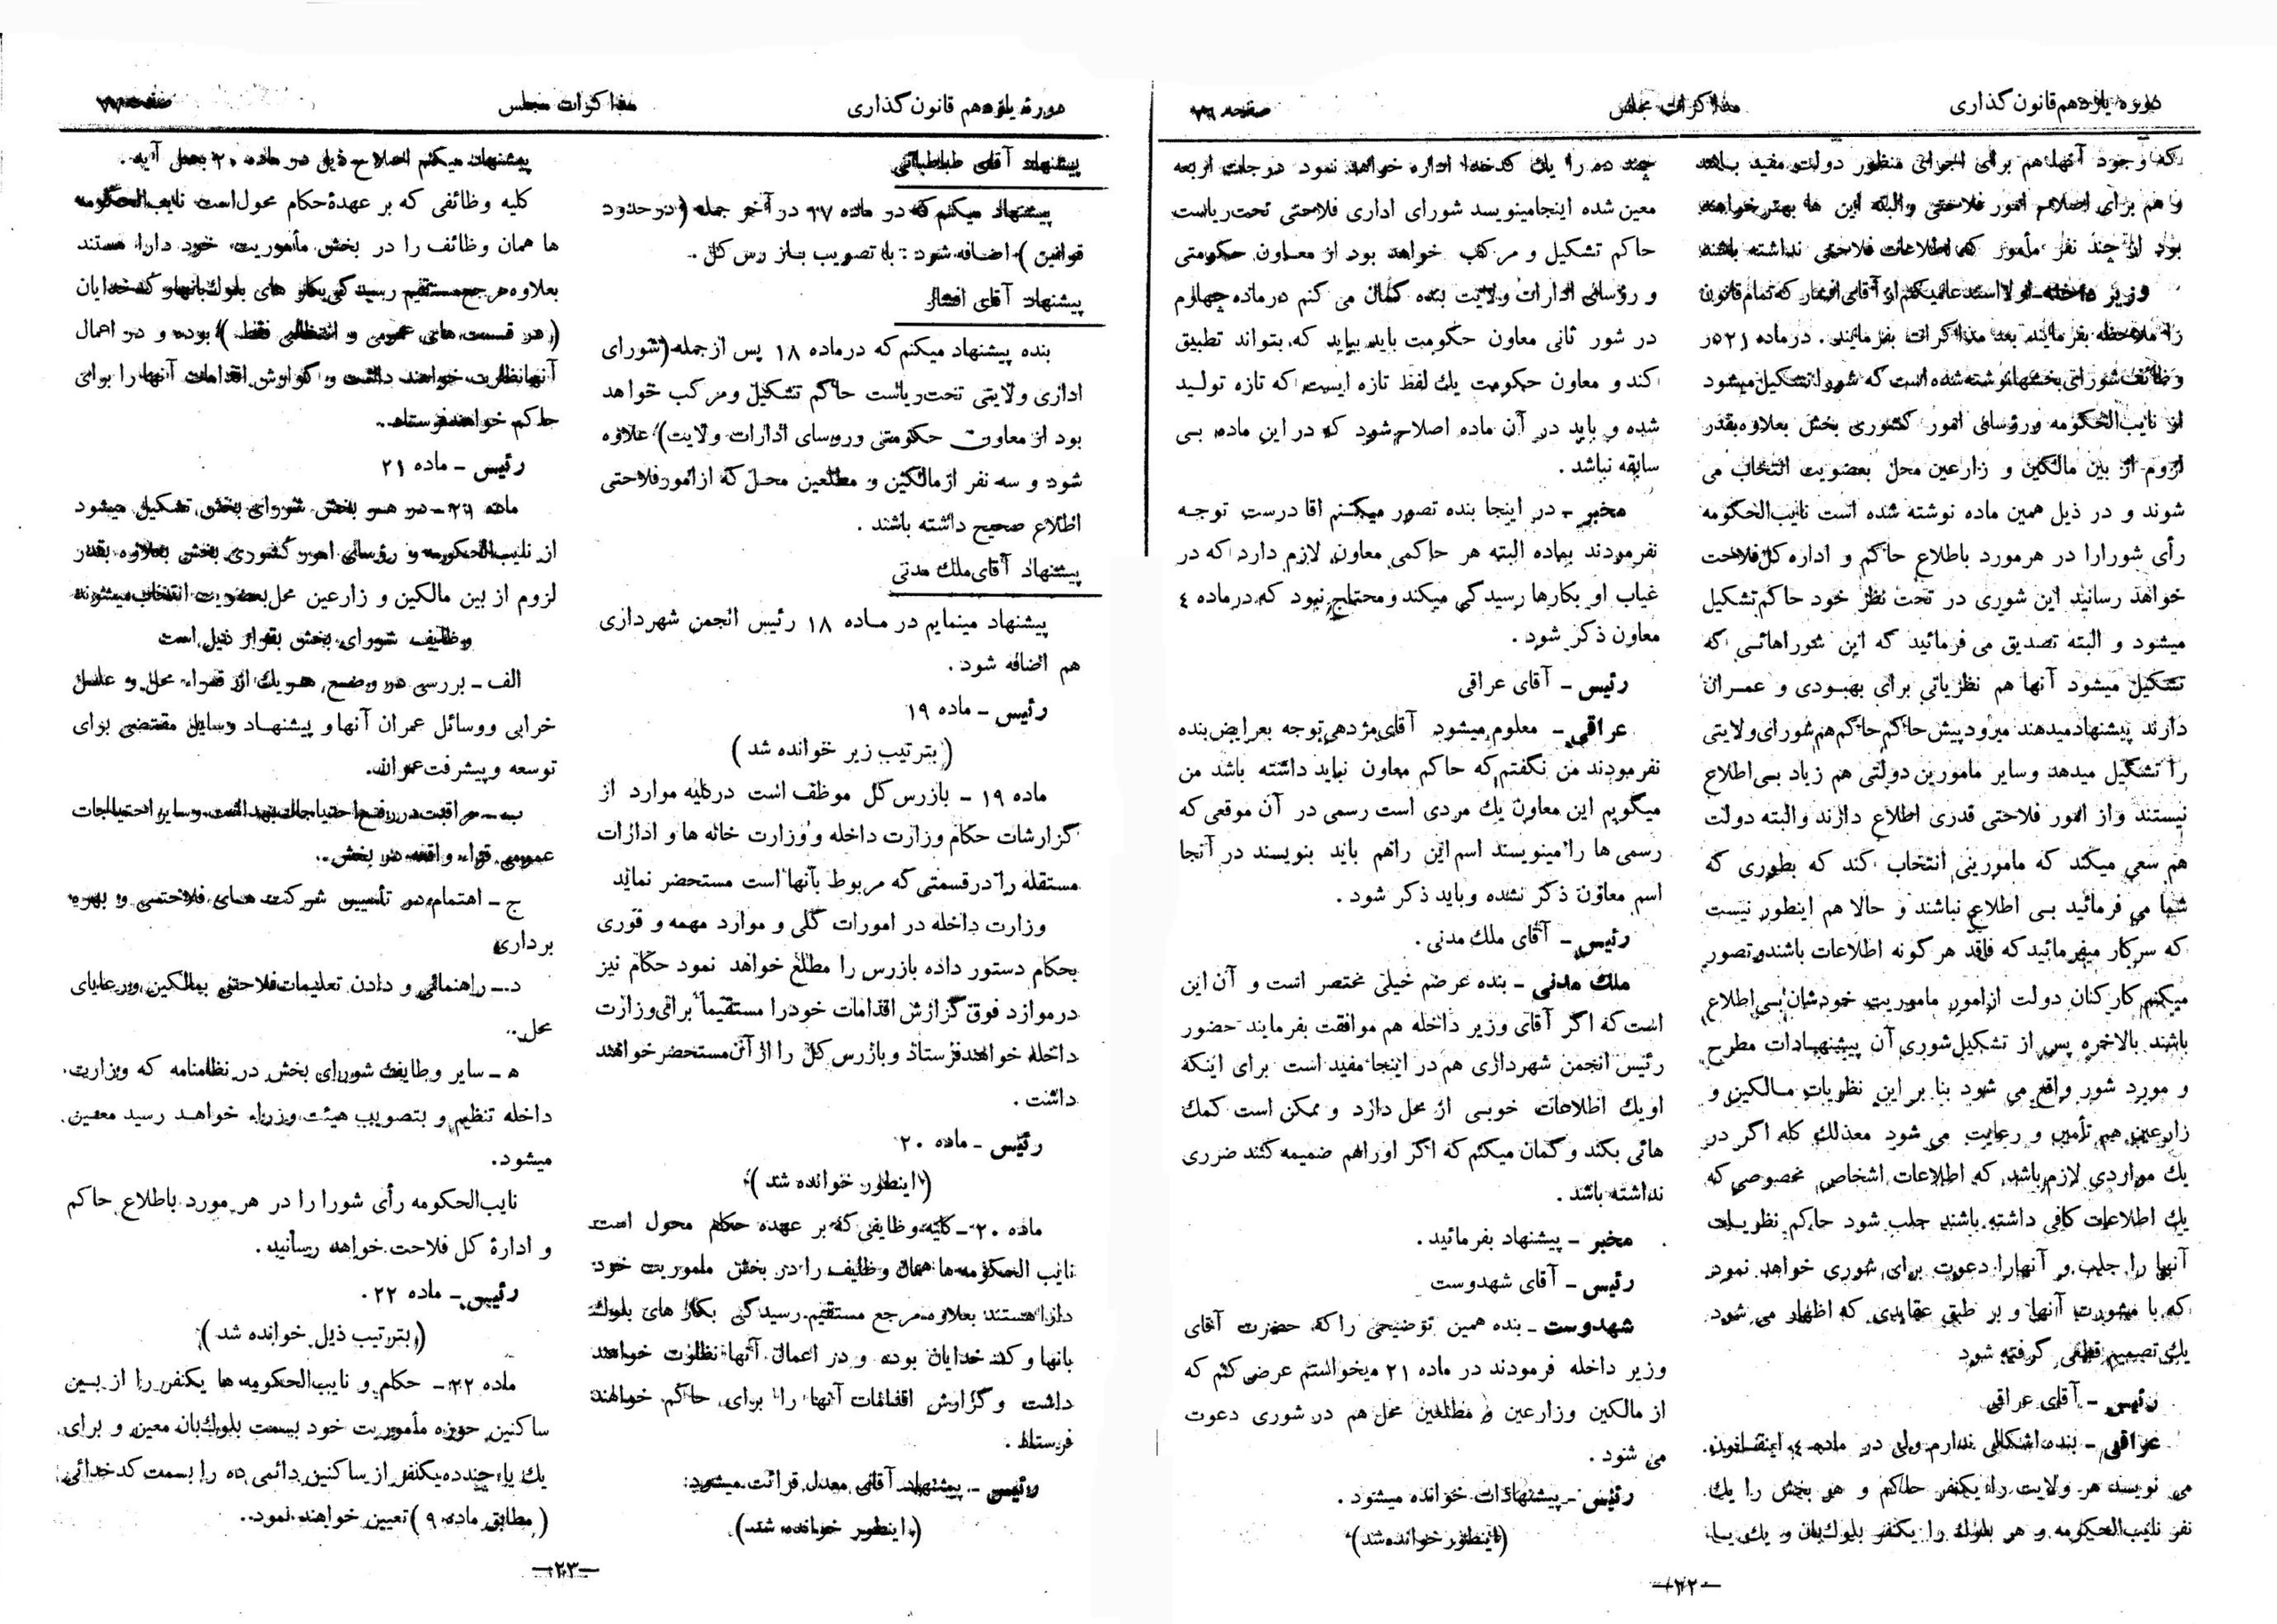 دوره یازدهم قانون‌گذاری
مذاکرات مجلس
صفحه ۷۶
که وجود آنها هم برای اجرای منظور دولت مفید باشد
و هم برای اصلاح امور فلاحتی والبته این ها بهتر خواهند
بود از چند نفر مأمور که اطلاعات فلاحتی نداشته باشند
وزیر داخله ـ اولا استدعا میکنم از آقای افشار که تمام قانون
را ملاحظه بفرمایند بعد مذاکرات بفرمایند . در ماده ۲۱ در
وظائف شورای بخشها نوشته شده است که شورا تشکیل میشود
از نایب‌الحکومه و رؤسای امور کشوری بخش بعلاوه بقدر
لزوم از بین مالکین و زارعین محل بعضویت انتخاب می
شوند و در ذیل همین ماده نوشته شده است نایب‌الحکومه
رأی شورارا در هرمورد باطلاع حاکم و اداره کل فلاحت
خواهد رسانید این شوری در تحت نظر خود حاکم تشکیل
میشود و البته تصدیق می فرمائید که این شوراهائی که
تشکیل میشود آنها هم نظریاتی برای بهبودی و عمران
دارند پیشنهاد میدهند میرود پیش حاکم حاکم هم شورای ولایتی
را تشکیل میدهد وسایر مامورین دولتی هم زیاد بی‌اطلاع
نیستند واز امور فلاحتی قدری اطلاع دارند والبته دولت
هم سعی میکند که مامورینی انتخاب کند که بطوری که
شما می فرمائید بی اطلاع نباشند و حالا هم اینطور نیست
که سرکار میفرمائید که فاقد هر گونه اطلاعات باشند و تصور
میکنم کارکنان دولت از امور ماموریت خودشان بی‌اطلاع
باشند بالاخره پس از تشکیل شوری آن پیشنهادات مطرح
و مورد شور واقع می شود بنا بر این نظریات مالکین و
زارعین هم تأمین و رعایت می شود معذلك کله اگر در
یك مواردی لازم باشد که اطلاعات اشخاص مخصوصی که
یك اطلاعات کافی داشته باشند جلب شود حاکم نظریات
آنها را جلب و آنهارا دعوت برای شوری خواهد نمود
که با مشورت آنها و بر طبق عقایدی که اظهار می شود
یك تصمیم قطعی گرفته شود
رئیس ـ آقای عراقی
عراقی ـ بنده اشکالی ندارم ولی در ماده ۴ اینقانون
می نویسد هر ولایت را یکنفر حاکم و هر بخش را یك
نفر نایب‌الحکومه و هر بلوك را یکنفر بلوك‌بان و یك یا
چند ده را یك کدخدا اداره خواهد نمود درجات اربعه
معین شده اینجا مینویسد شورای اداری فلاحتی تحت ریاست
حاکم تشکیل و مرکب خواهد بود از معاون حکومتی
و رؤسای ادارات ولایت بنده گمان می کنم در ماده چهارم
در شور ثانی معاون حکومت باید بیاید که بتواند تطبیق
کند و معاون حکومت یك لفظ تازه ایست که تازه تولید
شده و باید در آن ماده اصلاح شود که در این ماده بی
سابقه نباشد .
مخبر ـ در اینجا بنده تصور میکنم اقا درست توجه
نفرمودند بماده البته هر حاکمی معاون لازم دارد که در
غیاب او بکارها رسیدگی میکند و محتاج نبود که در ماده ٤
معاون ذکر شود .
رئیس ـ آقای عراقی
عراقی ـ معلوم میشود آقای مژدهی توجه بعرایض بنده
نفرمودند من نگفتم که حاکم معاون نباید داشته باشد من
میگویم این معاون یك مردی است رسمی در آن موقعی که
رسمی ها را مینویسند اسم این راهم باید بنویسند در آنجا
اسم معاون ذکر نشده وباید ذکر شود .
رئیس ـ آقای ملك مدنی .
ملك مدنی ـ بنده عرضم خیلی مختصر است و آن این
است که اگر آقای وزیر داخله هم موافقت بفرمایند حضور
رئیس انجمن شهرداری هم در اینجا مفید است برای اینکه
او یك اطلاعات خوبی از محل دارد و ممکن است کمك
هائی بکند و گمان میکنم که اگر اوراهم ضمیمه کنند ضرری
نداشته باشد .
مخبر ـ پیشنهاد بفرمائید .
رئیس ـ آقای شهدوست
شهدوست ـ بنده همین توضیحی را که حضرت آقای
وزیر داخله فرمودند در ماده ۲۱ میخواستم عرض کنم که
از مالکین وزارعین و مطلعین محل هم در شوری دعوت
می شود .
رئیس ـ پیشنهادات خوانده میشود .
(اینطور خوانده شد)
ـ۲۲ـ
دورهٔ یازدهم قانون گذاری
مذاکرات مجلس
صفحه ۷۷
پیشنهاد آقای طباطبائی
پیشنهاد میکنم که در ماده ۱۷ در آخر جمله ( در حدود
قوانین ) اضافه شود : با تصویب بازرس کل .
پیشنهاد آقای افشار
بنده پیشنهاد میکنم که درماده ۱۸ پس از جمله (شورای
اداری ولایتی تحت ریاست حاکم تشکیل ومرکب خواهد
بود از معاون حکومتی وروسای ادارات ولایت) علاوه
شود و سه نفر از مالکین و مطلعین محل که از امور فلاحتی
اطلاع صحیح داشته باشند .
پیشنهاد آقای ملك مدنی
پیشنهاد مینمایم در ماده ۱۸ رئیس انجمن شهرداری
هم اضافه شود .
رئیس ـ ماده ۱۹
( بترتیب زیر خوانده شد )
ماده ۱۹ ـ بازرس کل موظف است در کلیه موارد از
گزارشات حکام وزارت داخله و وزارت خانه ها و ادارات
مستقله را در قسمتی که مربوط بآنها است مستحضر نماید
وزارت داخله در امورات کلی و موارد مهمه و فوری
بحکام دستور داده بازرس را مطلع خواهد نمود حکام نیز
در موارد فوق گزارش اقدامات خودرا مستقیماً برای وزارت
داخله خواهند فرستاد و بازرس کل را از آن مستحضر خواهند
داشت .
رئیس ـ ماده ۲۰
(اینطور خوانده شد)
ماده ۲۰ ـ کلیه وظایفی که بر عهده حکام محول است
نایب الحکومه ها همان وظایف را در بخش ماموریت خود
دارا هستند بعلاوه مرجع مستقیم رسیدگی بکار های بلوك
بانها و کدخدایان بوده و در اعمال آنها نظارت خواهند
داشت و گزارش اقدامات آنها را برای حاکم خواهند
فرستاد .
رئیس ـ پیشنهاد آقای معدل قرائت میشود:
(اینطور خوانده شد)
پیشنهاد میکنم اصلاح ذیل در ماده ۲۰ بعمل آید .
کلیه وظائفی که بر عهدهٔ حکام محول است نایب‌الحکومه
ها همان وظائف را در بخش مأموریت خود دارا هستند
بعلاوه مرجع مستقیم رسیدگی بکار های بلوك‌بانها و کدخدایان
(در قسمت های عمومی و انتظامی فقط) بوده و در اعمال
آنها نظارت خواهند داشت و گزارش اقدامات آنها را برای
حاکم خواهند فرستاد .
رئیس ـ ماده ۲۱
ماده ۲۱ ـ در هر بخش شورای بخش تشکیل میشود
از نایب‌الحکومه و رؤسای امور کشوری بخش بعلاوه بقدر
لزوم از بین مالکین و زارعین محل بعضویت انتخاب میشوند
وظایف شورای بخش بقرار ذیل است
الف ـ بررسی در وضع هر یك از قراء محل و علل
خرابی ووسائل عمران آنها و پیشنهاد وسایل مقتضی برای
توسعه و پیشرفت عمران.
ب ـ مراقبت در رفع احتیاجات بهداشت و سایر احتیاجات
عمومی قراء واقعه در بخش .
ج ـ اهتمام در تأسیس شرکت های فلاحتی و بهره
برداری
د ـ راهنمائی و دادن تعلیمات فلاحتی بمالکین و رعایای
محل .
ه ـ سایر وظایف شورای بخش در نظامنامه که وزارت
داخله تنظیم و بتصویب هیئت وزراء خواهد رسید معین
میشود.
نایب‌الحکومه رأی شورا را در هر مورد باطلاع حاکم
و ادارهٔ کل فلاحت خواهد رسانید .
رئیس ـ ماده ۲۲ .
(بترتیب ذیل خوانده شد)
ماده ۲۲ ـ حکام و نایب‌الحکومه ها یکنفر را از بین
ساکنین حوزه مأموریت خود بسمت بلوك‌بان معین و برای
یك یا چند ده یکنفر از ساکنین دائمی ده را بسمت کدخدائی
( مطابق ماده ۹ ) تعیین خواهند نمود .
ـ۲۳ـ